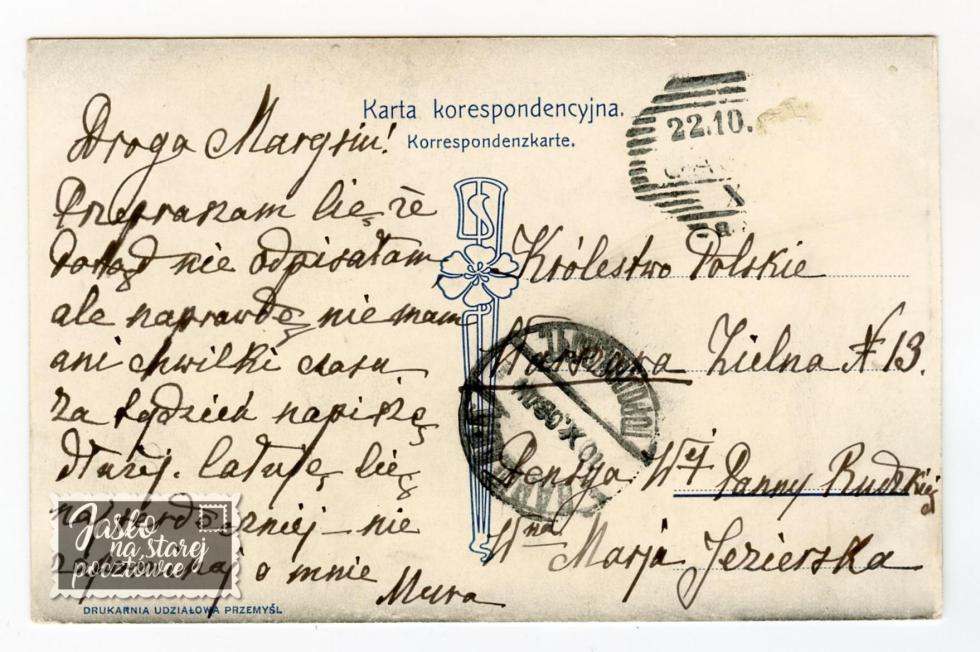 Karta korespondencyjna.
Korrespondenzkarte.
22.10.
X
Droga Marysiu!
Przepraszam Cię że
dotąd nie odpisałam
ale naprawdę nie mam
ani chwilki czasu
Za tydzień napiszę
dłużej. Całuję Cię
naj serdeczniej – nie
o mnie
Mura
Królestwo Polskie
Warszawa Zielna № 13.
Pensja Wej Panny Rudzkiej
Wna Marja Jezierska
Jasło
na starej
pocztówce
DRUKARNIA UDZIAŁOWA PRZEMYŚL